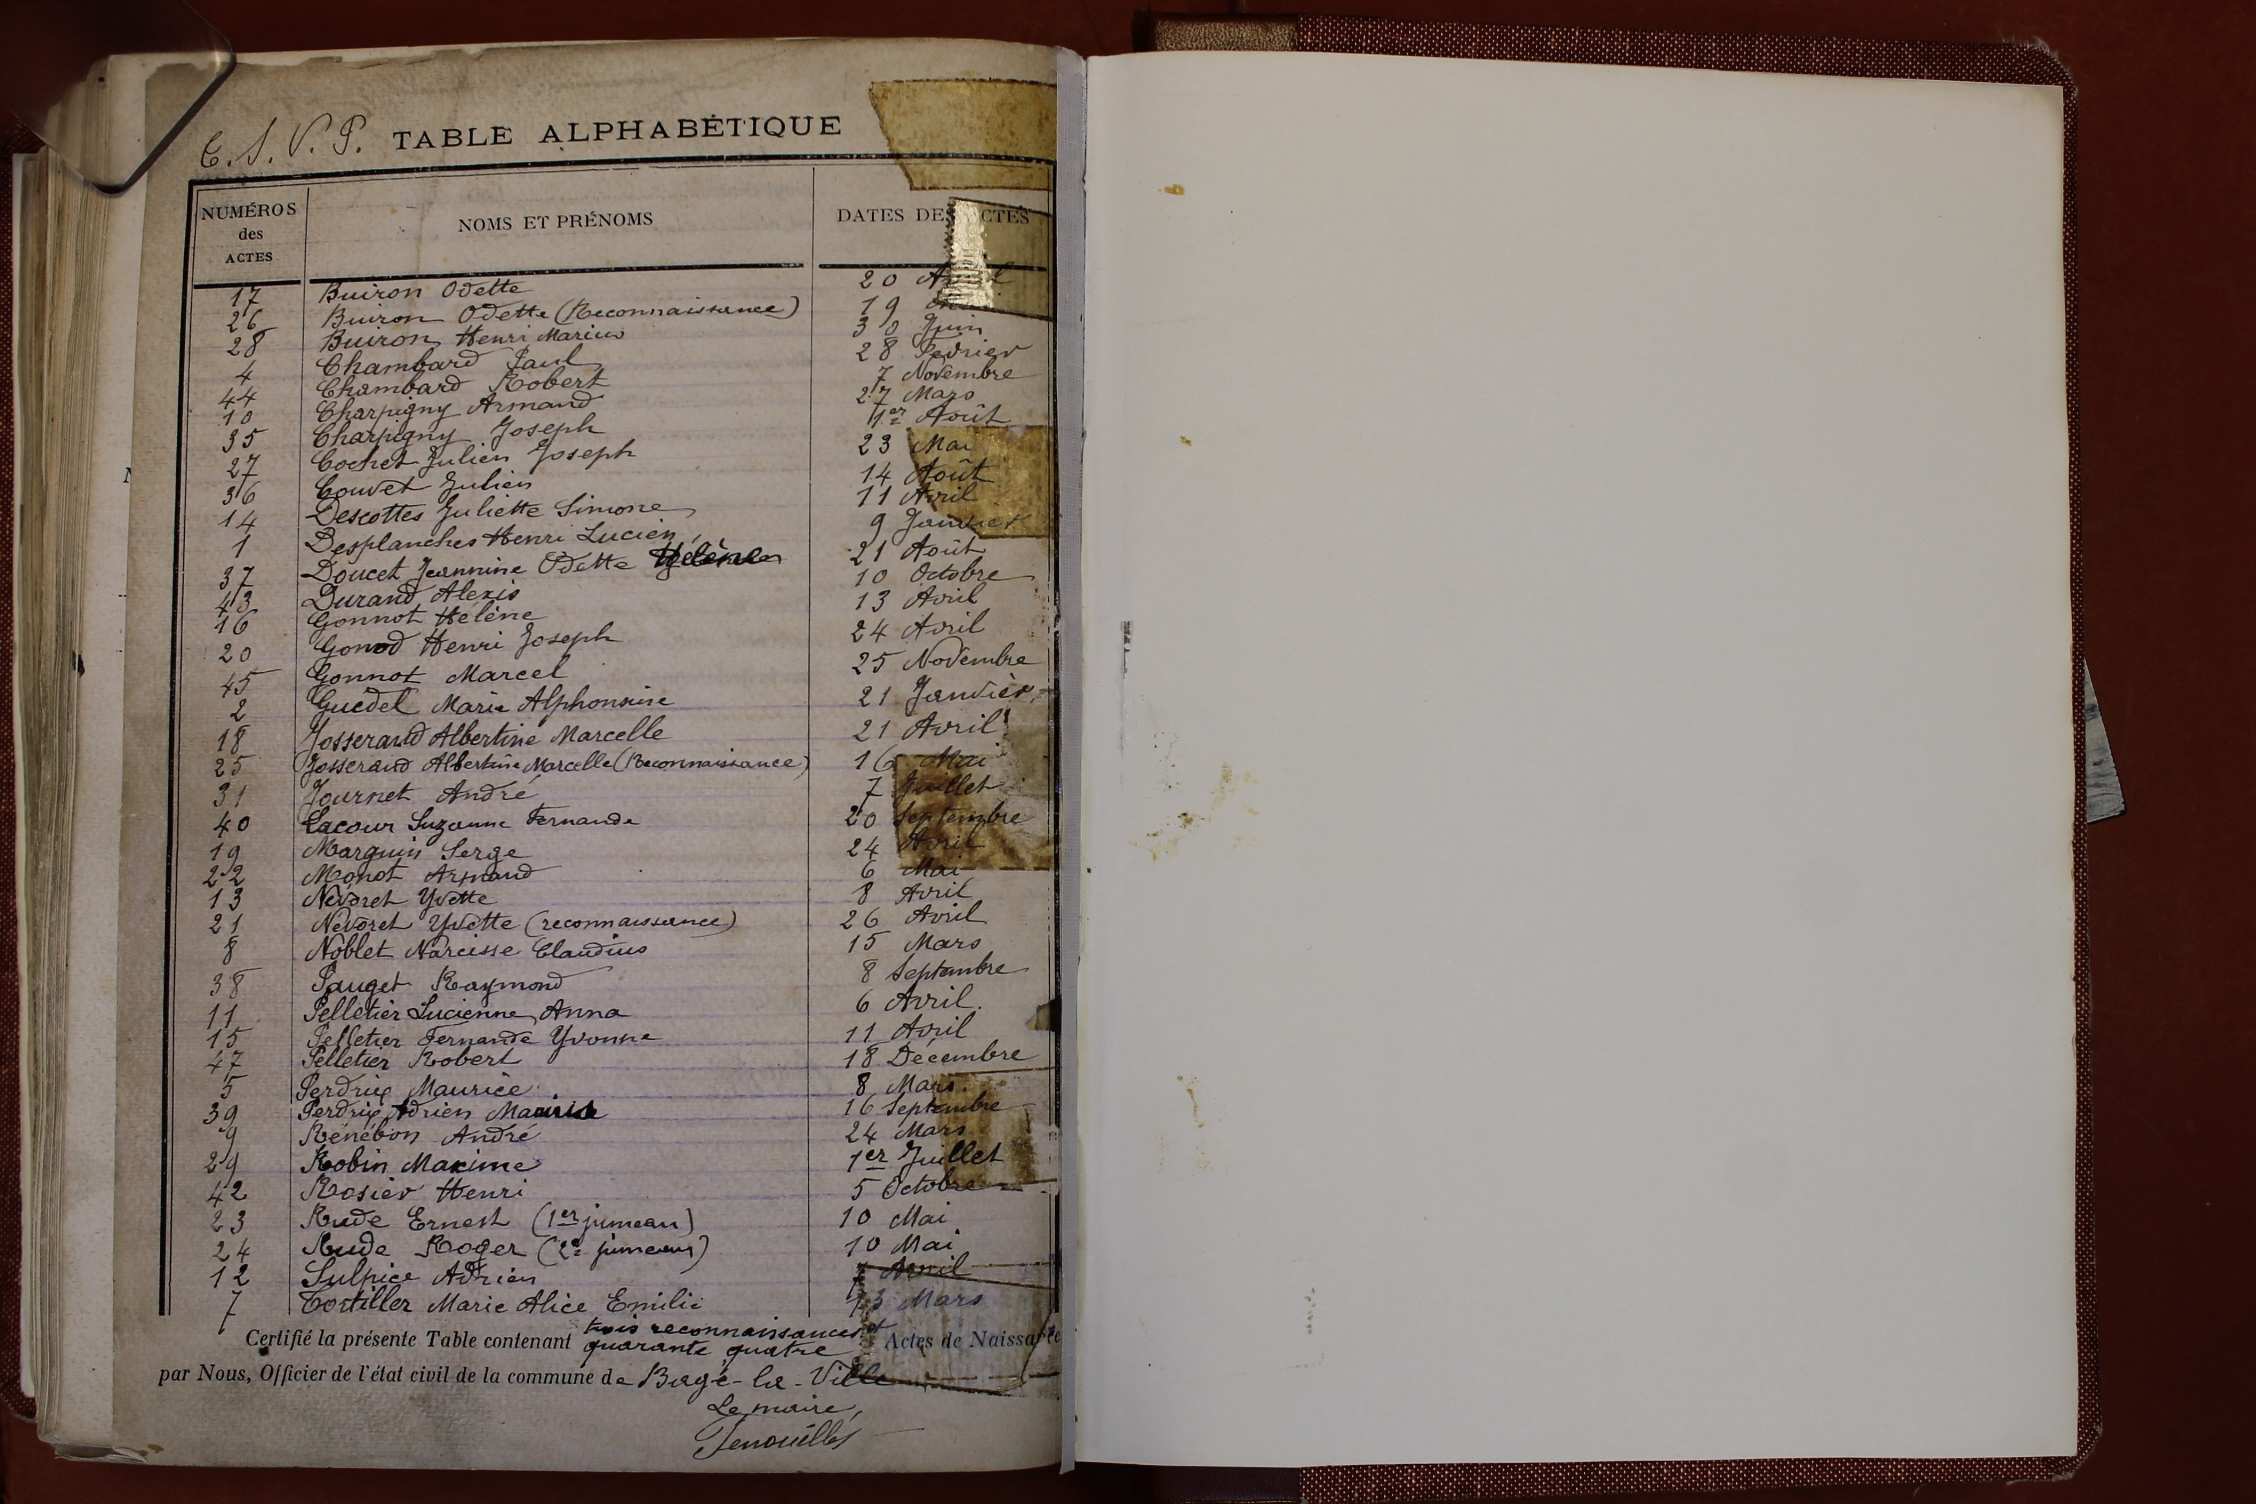 T. S. V. P. TABLE ALPHABÉTIQUE
NUMÉROS des ACTES NOMS ET PRÉNOMS DATES DES ACTES
17 Buiron Odette 20 Avril
26 Buiron Odette (Reconnaissance) 19
28 Buiron Henri Marius 30 Juin
4 Chambard Paul 28 Février
44 Chambard Robert 7 Novembre
10 Charpigny Armand 27 Mars
35 Charpigny Joseph 1er Août
27 Cochet Julien Joseph 23 Mai
36 Couvet Julien 14 Août
14 Descottes Juliette Simone 11 Avril
1 Desplanches Henri Lucien 9 Janvier
37 Doucet Jeannine Odette Hélène 21 Août
43 Durand Alexis 10 Octobre
16 Gonnot Hélène 13 Avril
20 Gonod Henri Joseph 24 Avril
45 Gonnot Marcel 25 Novembre
2 Guedel Marie Alphonsine 21 Janvier
18 Josserand Albertine Marcelle 21 Avril
25 Josserand Albertine Marcelle (Reconnaissance) 16 Mai
31 Journet André 7 Juillet
40 Lacour Suzanne Fernande 20 Septembre
19 Marguin Serge 24 Avril
22 Monot Armand 6 Mai
13 Nevoret Yvette 8 Avril
21 Nevoret Yvette (reconnaissance) 26 Avril
8 Noblet Narcisse Claudius 15 Mars
38 Pauget Raymond 8 Septembre
11 Pelletier Lucienne Anna 6 Avril.
15 Pelletier Fernande Yvonne 11 Avril
47 Pelletier Robert 18 Décembre
5 Perdrix Maurice 8 Mars.
39 Perdrix Adrien 16 Septembre
9 Rénébon André 24 Mars
29 Robin Maxime 1er Juillet
42 Rosier Henri 5 Octobre
23 Rude Ernest (1er jumeau) 10 Mai
24 Rude Roger (2e jumeau) 10 Mai
12 Sulpice Adrien 7 Avril
7 Tortiller Marie Alice Emilie 13 Mars
Certifié la présente Table contenant trois reconnaissances et quarante quatre Actes de Naissance
par Nous, Officier de l'état civil de la commune de Bagé-la-Ville
Le maire,